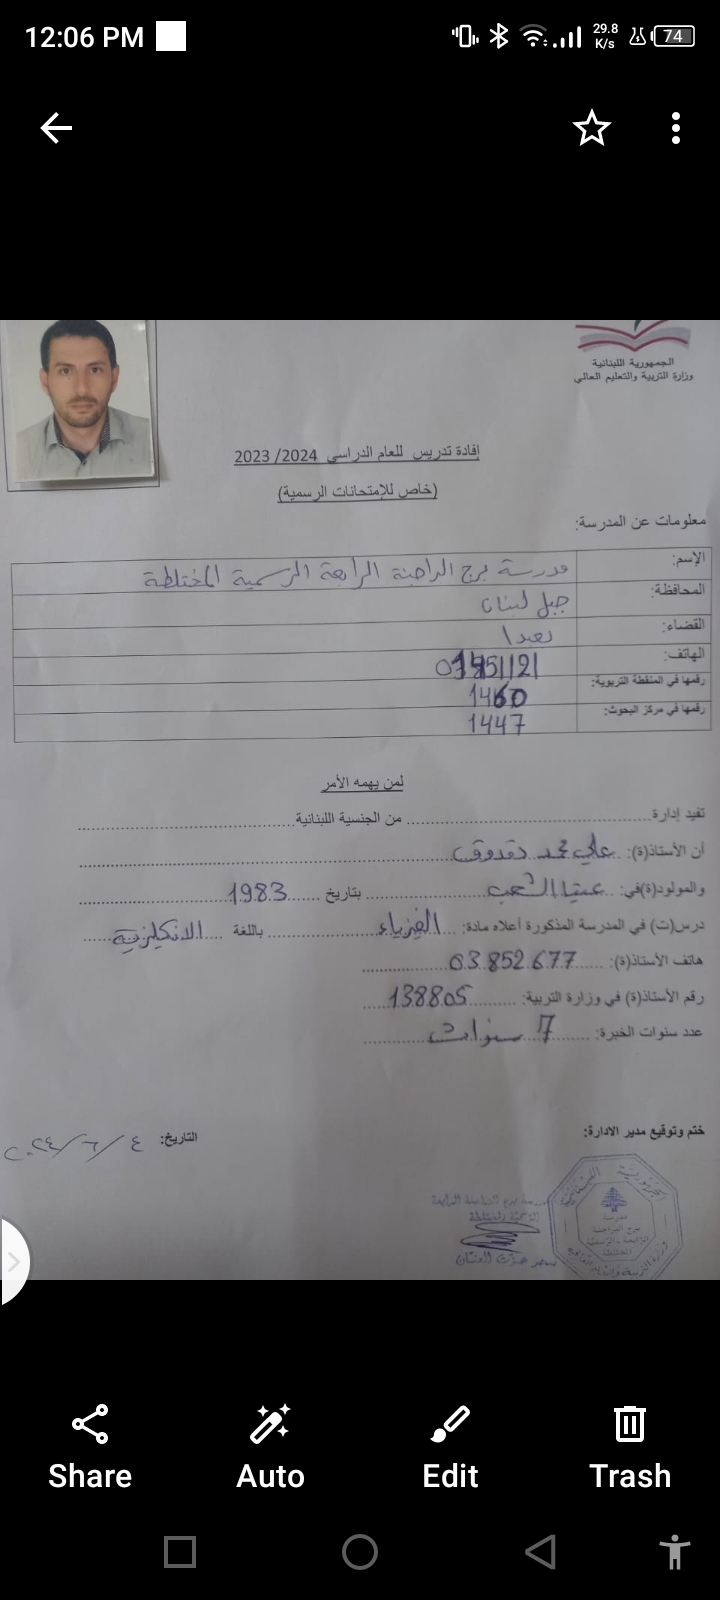 12:06 PM
29.8 K/s
74
الجمهورية اللبنانية
وزارة التربية والتعليم العالي
إفادة تدريس للعام الدراسي 2024/ 2023
(خاص للإمتحانات الرسمية)
معلومات عن المدرسة:
الإسم: مدرسة برج البراجنة الرابعة الرسمية المختلطة
المحافظة: جبل لبنان
القضاء: بعبدا
الهاتف:
رقمها في المنطقة التربوية: 1460
رقمها في مركز البحوث: 1447
لمن يهمه الأمر
تفيد إدارة من الجنسية اللبنانية
أن الأستاذ(ة): علي محمد دقدوق
والمولود(ة)في: عيتا الشعب بتاريخ 1983
درس(ت) في المدرسة المذكورة أعلاه مادة: الفيزياء باللغة الانكليزية
هاتف الأستاذ(ة): 03852677
رقم الأستاذ(ة) في وزارة التربية: 138805
عدد سنوات الخبرة: 7 سنوات
ختم وتوقيع مدير الادارة:
التاريخ: ٤/٦/٢٠٢٤
الرسمية المختلطة
Share
Auto
Edit
Trash